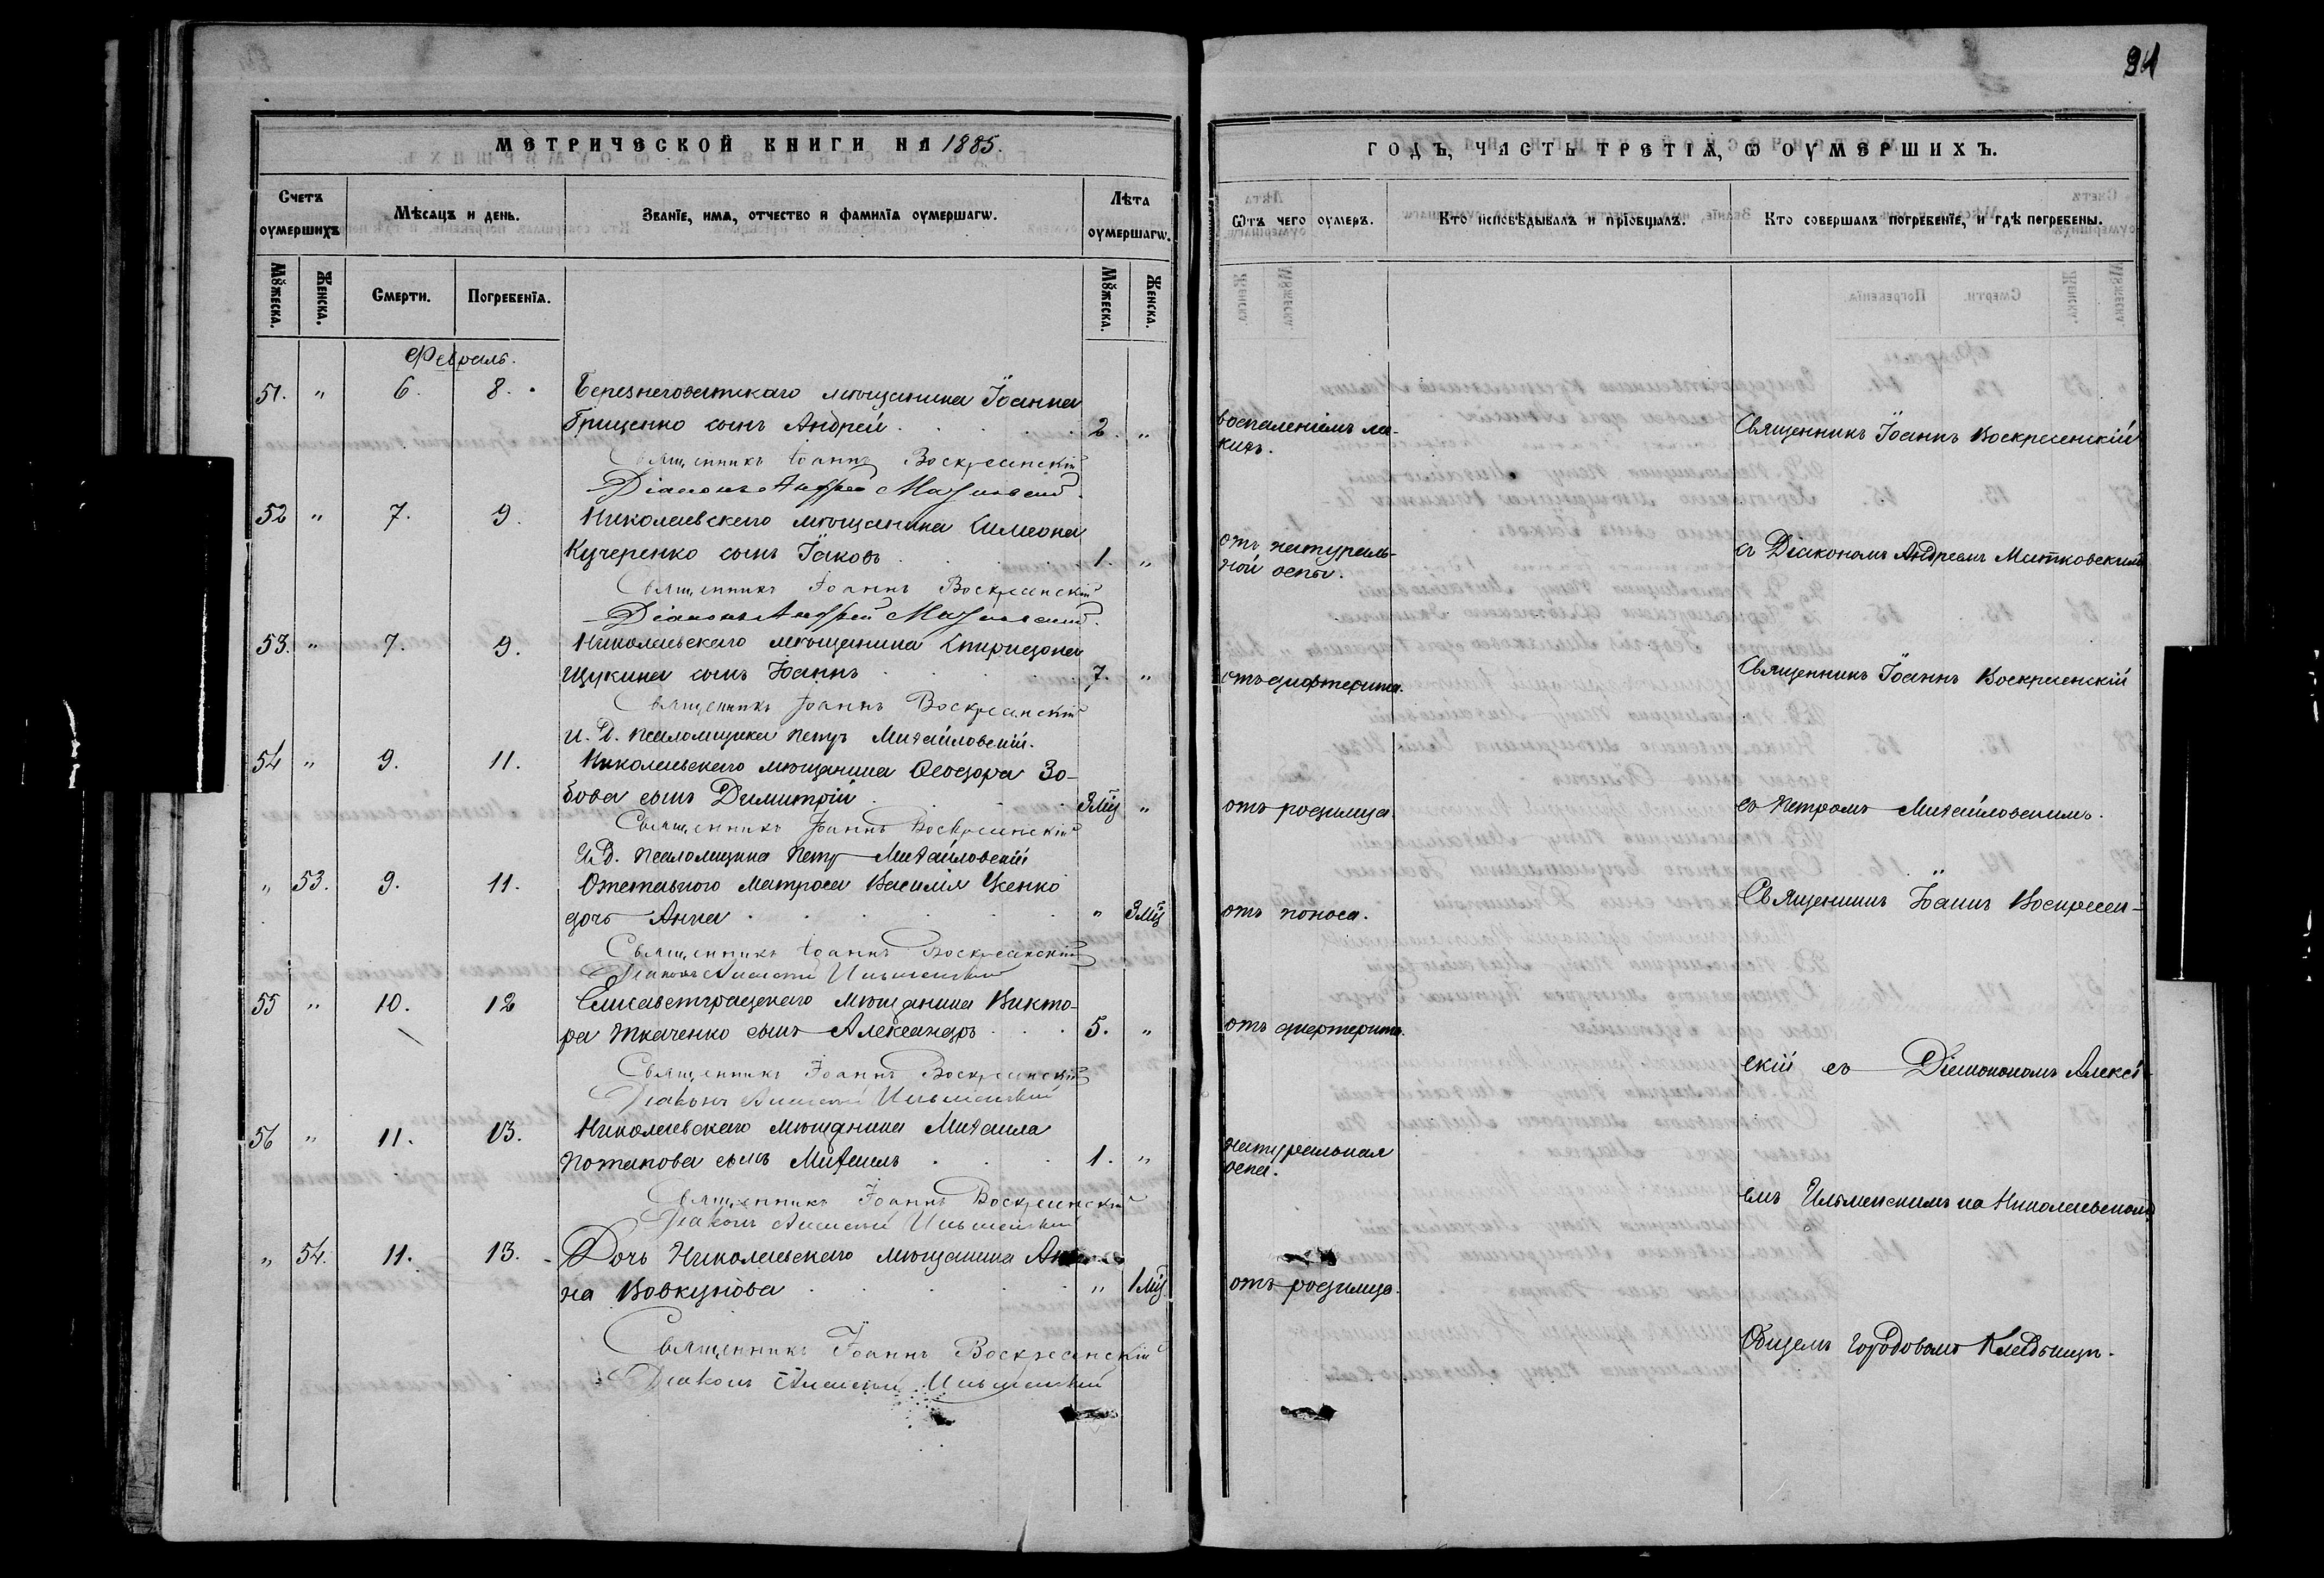 94
МЕТРИЧЕСКОЙ КНИГИ НА 1885.
Счетъ оумершихъ
Мѣсяцъ и день.
Званїе, имя, отчество и фамилїя оумершагѡ.
Лѣта оумершагѡ.
Мꙋжеска.
Женска.
Смерти.
Погребенїя.
Мꙋжеска.
Женска.
Февраль.
51. " 6. 8. Березнеговатскаго мѣщанина Іоанна
Грищенко сынъ Андрей 2. "
Священникъ Іоаннъ Воскресенскій
Діаконъ Андрей
52 " 7. 9. Николаевскаго мѣщанина Симеона
Кучеренко сынъ Іаковъ 1. "
Священникъ Іоаннъ Воскресенскій
Діаконъ Андрей
53. " 7. 9. Николаевскаго мѣщанина Спиридона
Щукина сынъ Іоаннъ 7. "
Священникъ Іоаннъ Воскресенскій
И. Д. псаломщика Петръ Михайловскій.
54 " 9. 11. Николаевскаго мѣщанина Ѳеодора Зо-
бова сынъ Димитрій 3 мц "
Священникъ Іоаннъ Воскресенскій
И. Д. псаломщика Петръ Михайловскій
" 53. 9. 11. Отставного матроса Василія Уженко
дочь Анна " 3 мц
Священникъ Іоаннъ Воскресенскій
Діаконъ Алексій Ильменскій
55 " 10. 12 Елисаветградскаго мѣщанина Викто-
ра Ткаченко сынъ Александръ 5. "
Священникъ Іоаннъ Воскресенскій
Діаконъ Алексій Ильменскій
56 " 11. 13. Николаевскаго мѣщанина Михаила
Потапова сынъ Михаилъ 1. "
Священникъ Іоаннъ Воскресенскій
Діаконъ Алексій Ильменскій
" 54. 11. 13. Дочь Николаевскаго мѣщанина
на Вовкунова " 1 мц
Священникъ Іоаннъ Воскресенскій
Діаконъ Алексій Ильменскій
ГОДЪ, ЧАСТЬ ТРЕТІЯ, Ѡ ОУМЕРШИХЪ.
Ѿтъ чего оумеръ.
Кто исповѣдывалъ и прїобщалъ.
Кто совершалъ погребенїе, и гдѣ погребены.
воспаленіемъ ле-
кихъ.
Священникъ Іоаннъ Воскресенскій
отъ натураль-
ной оспы.
съ Діакономъ Андреемъ Матковскимъ
отъ дифтерита.
Священникъ Іоаннъ Воскресенскій
отъ родимца.
съ Петромъ Михайловскимъ.
отъ поноса.
Священникъ Іоаннъ Воскресен-
отъ дифтерита.
скій съ Діакономъ Алексѣ-
натуральная
оспа.
емъ Ильменскимъ на Николаевскомъ
отъ родимца.
Общемъ Городовомъ Кладбищѣ.